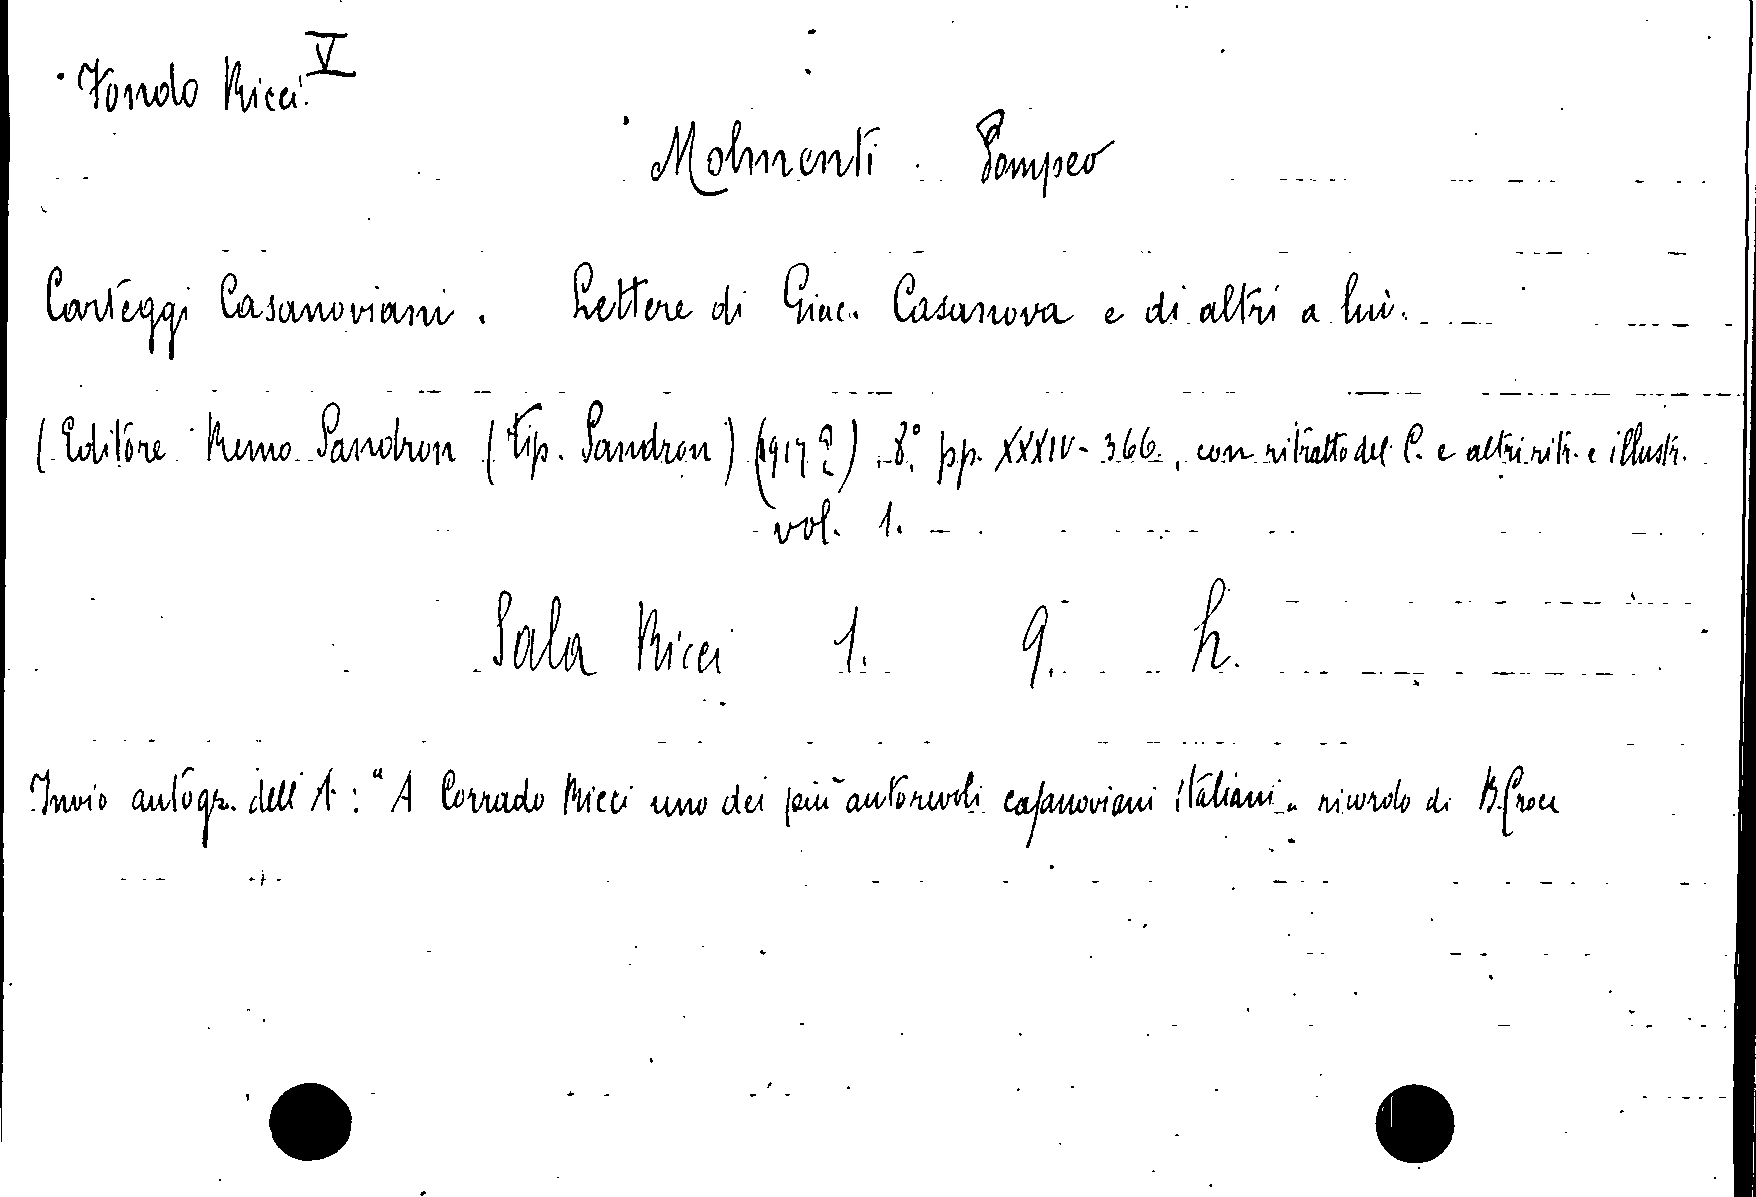 Fondo Ricci V
Molmenti Pompeo
Carteggi Casanoviani. Lettere di Giac. Casanova e di altri a lui.
(Editore Remo Sandron (tip. Sandron) (1917?) 8° pp. XXXIV-366, con ritratto del C. e altri ritr. e illustr.
vol. 1.
Sala Ricci 1. 9. h.
Invio autogr. dell'A: "A Corrado Ricci uno dei più autorevoli casanoviani italiani" ricordo di B. Croce